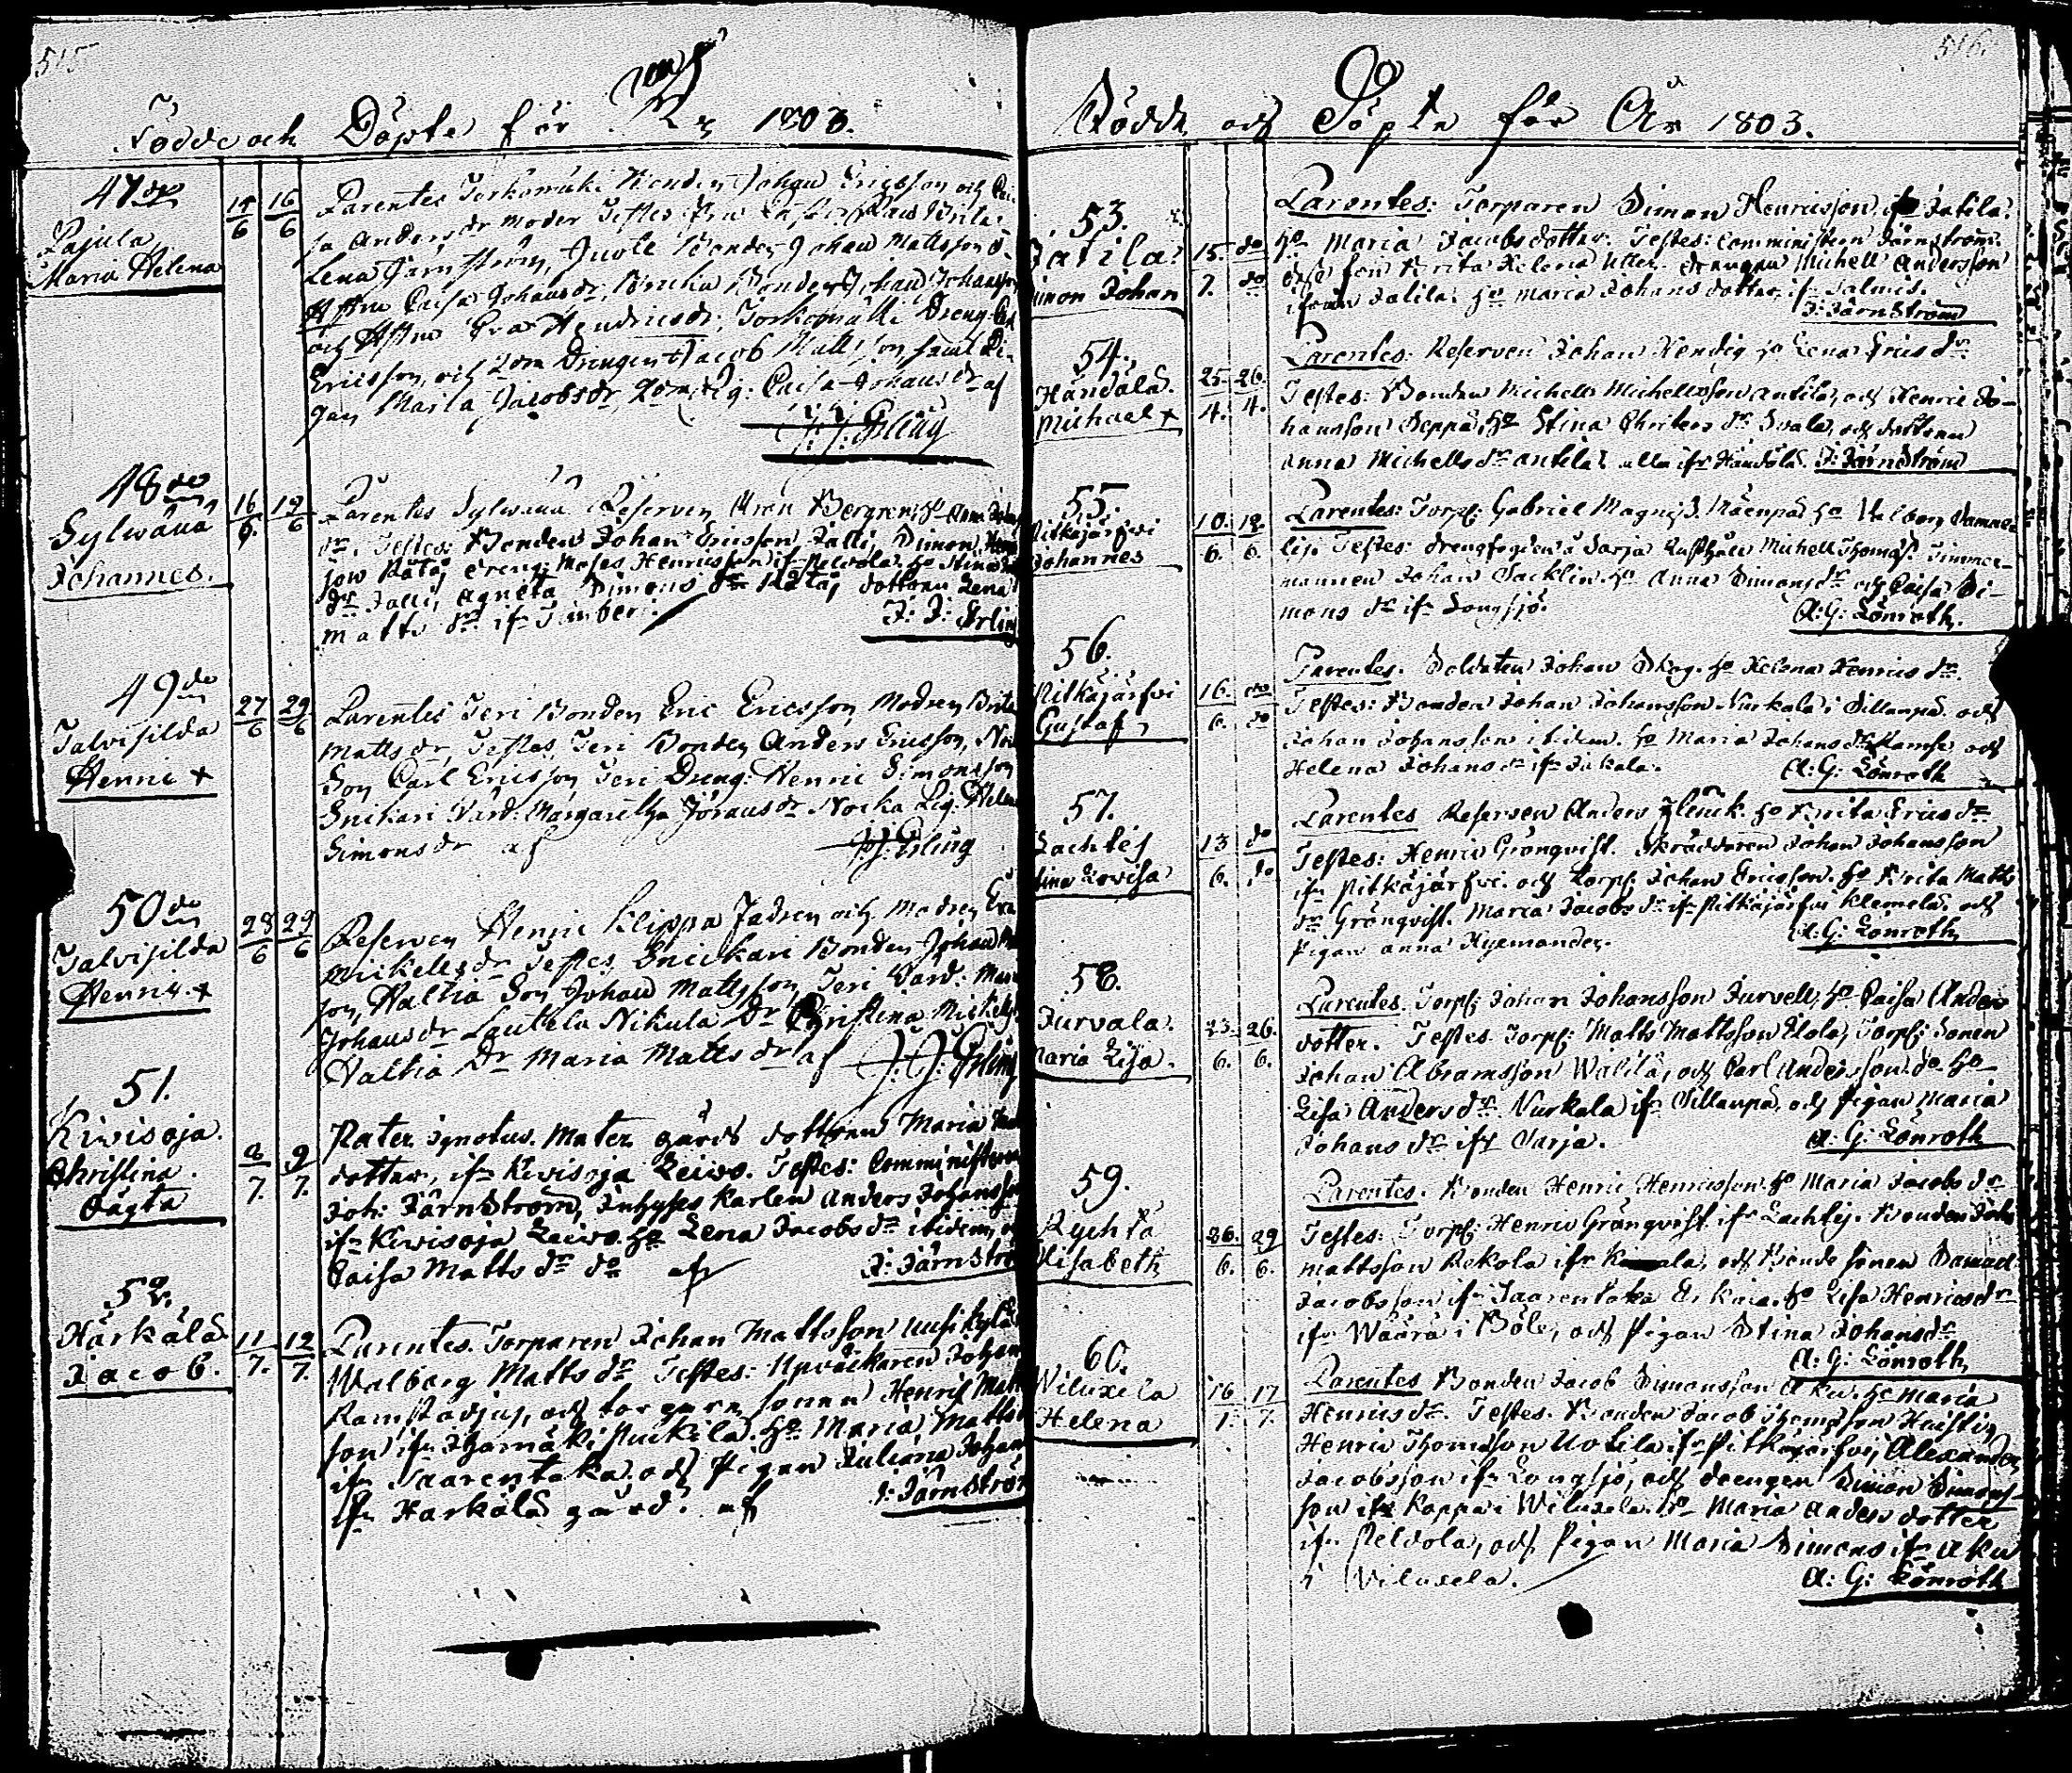 515
Födde och Döpte för År 1803.
47de
Pajula
Maria Helena
15/6 16/6
Parentes Torkomäki Bonden Johan Ericsson och Cai-
sa Andersdr moder Testes Fru
Lena Järnström, Bonden Johan Mattsson
Hstru Caisa Johansdr, Bonden Johan Johansson
och Hstru Eva Hendricsdr, Torkomäki Dreng
Ericsson, och Drengen Jacob Mattsson, samt Pi-
gan Maria Jacobsdr Caisa Johansdr af
J: J: Erling
48de
Sylwänä
Johannes.
16/6 19/6
Parentes Sylwänä Reserven Bergren, ho Anna
dr. Testes: Bonden Johan Ericsson Jalli, Simon
son Rätöj dreng: Moses Henricsson ifr Peldola. ho Stina
dr Jalli, Agneta Simons dr Rätöj dottren Lena
Matts dr ifr Timber.
J: J: Erling
49de
Talvisilda
Henric +
27/6 29/6
Parentes Teri Bonden Eric Ericsson Modren Brita
Mattsdr, Testes, Teri Bonden Anders Ericsson,
Son Carl Ericsson Teri Dreng: Henric Simonsson
Snikari Värd: Margaretha Göransdr Nocka Leg: Helena
Simonsdr af
J: J: Erling
50de
Talvisilda
Henric +
28/6 29/6
Reserven Henric Klippa Fadren och Modren Eva
Mickelsdr Testes Snickari Bonden Johan
son, Valtia Son Johan Mattsson, Teri Värd: Maria
Johansdr Lautela Nikula Dr Christina Mickels
Valtia Dr Maria Mattsdr af J: J: Erling
51.
Kivisoja.
Christina.
Oägta
8/7. 9/7.
Pater Ignotus. Mater gårds dottren Maria
dotter, ifr Kivisoja Leivo. Testes: Comministern
Joh: Järnström, Inhyses Karlen Anders Johansson
ifr Kivisoja Leivo. ho Lena Jacobs dr ibidem, och
Caisa Matts dr do af
J: Järnström
52.
Härkälä
Jacob.
11/7. 12/7.
Parentes. Torparen Johan Mattsson Uusikylä
Walborg Matts dr Testes: Upväckaren Johan
Ramstadjus, och torpare sonen Henric Matts
son ifr Ihamäki Puckila. ho Maria Matts
ifr Saarentaka. och Pigan Juliana Johans
ifr Harkälä gård. af
J: Järnström
516.
Födde och Döpte för År 1803.
53.
Jatila.
Simon Johan
15. do
7. do
Parentes: Torparen Simon Henricsson ifr Jatila.
ho Maria Jacobsdotter. Testes: Comministern Järnström.
dess fru Brita Helena Utter. drengen Michell Andersson
ifrån Jatila. ho Maria Johans dotter, ifr Salmis.
J: Järnström
54.
Händälä.
Michael +
25. 26.
4. 4.
Parentes. Reserven Johan Hendig ho Lena Erics dr.
Testes: Bonden Michell Michellsson Antila, och Henric Jo-
hansson Seppä, ho Stina Christers dr Svala, och dottren
Anna Michells dr Antila. alla ifr Händälä. J: Järnström
55.
Pitkäjärfvi
Johannes
10. 12.
6. 6.
Parentes: Torp: Gabriel Magnis. Mäenpää ho Walborg
Testes: drengfogden i Sarja Rusthåll Michell Thomas. Timmer-
mannen Johan Sacklin. ho Anna Simonsdr och Caisa Si-
mons dr ifr Longsjö.
A: G: Lönroth.
56.
Pitkäjärfvi
Gustaf
16. do
6. do
Parentes. Soldaten Johan Skog. ho Helena Henrics dr.
Testes: Bonden Johan Johansson Nurkala i Sillanpä. och
Johan Johansson ibidem. ho Maria Johans dr Ramse och
Helena Johans dr ifr Jakala.
A: G: Lönroth
57.
Lachtej
Stina Lovisa
13 do
6. do
Parentes Reserven Anders Flinck. ho Brita Erics dr
Testes: Henric Grönqvist. Skräddaren Johan Johansson
ifr Pitkäjärfvi. och torp: Johan Ericsson. ho Brita Matts
dr Grönqvist. Maria Jacobs dr ifr Pitkäjärfvi Klemelä. och
Pigan Anna Hyemander.
A: G: Lönroth
58.
Jurvala.
Maria Lisa.
23. 26.
6. 6.
Parentes. Torp: Johan Johansson Jurvell, ho Caisa Anders
dotter. Testes. Torp: Matts Mattsson Elola, Torp: Sonen
Johan Abramsson Wälilä, och Carl Andersson. do ho
Lisa Anders dr. Nurkala ifr Sillanpä. och Pigan Maria
Johans dr ifr Sarja.
A: G: Lönroth
59.
Rychtä
Elisabeth
26. 29
6. 6.
Parentes. Bonden Henric Henricsson. ho Maria Jacobs dr
Testes: Torp: Henric Grönqvist ifr Lachtej. Bonden Joh:
Mattsson Rekola ifr och Bonde sonen Samuel
Jacobsson ifr Saarentaka Erkaia. ho Lisa Henrics dr
ifr Wäärä i Böle, och Pigan Stina Johansdr
A: G: Lönroth
60.
Wiluxela
Helena
16 17
7. 7.
Parentes Bonden Jacob Simonsson Aku. ho Maria
Henricsdr. Testes. Bonden Jacob Thomsson Hästig
Henric Thomsson Uotila ifr Pitkäjärfvi, Alexander
Jacobsson ifr Longsjö, och drengen Simon Simons-
son ifr Koppa i Wiluxela. ho Maria Anders dotter
ifr Peldola, och Pigan Maria Simons ifr Aku
i Wiluxela.
A: G: Lönroth